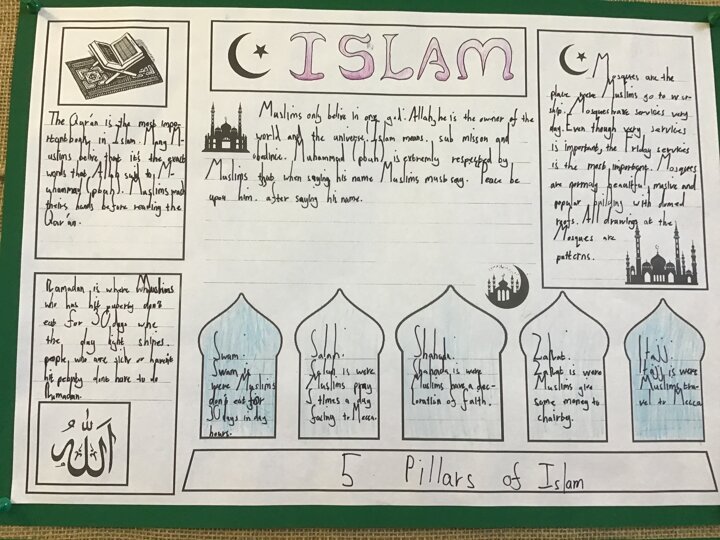 ISLAM
The Qur'an is the most impo-
rtant book in Islam. Many M-
uslims belive that it's the exact
words that Allah said to M-
uhammad (pbuh). Muslims wash
theirs hands before reading the
Qur'an.
Muslims only belive in one god. Allah, he is the owner of the
world and the universe. Islam means. sub misson and
obedince. Muhammad (pbuh) is extremly respected by
Muslims that when saying his name Muslims must say. Peace be
upon him. after saying his name.
Mosques are the
place were Muslims go to wor-
ship. Mosques have services very
day. Even though very services
is important, the Friday services
is the most important. Mosques
are normaly beautiful, masive and
popular building with domed
roofs. All drawings at the
Mosques are
patterns.
Ramadan is where Muslims
who has hit puberty don't
eat for 30 days whe
the day light shines.
people, who are sick or haven't
hit puberty dont have to do
Ramadan.
الله
Swam.
Swam is
were Muslims
don't eat for
30 days in day
hours.
Salah.
Salah is were
Muslims pray
5 times a day
facing to Mecca.
Shahada.
Shahada is were
Muslims have a dec-
laration of faith.
Zakat.
Zakat is were
Muslims give
some money to
chairty.
Hajj.
Hajj is were
Muslims tra-
vel to Mecca
5 Pillars of Islam